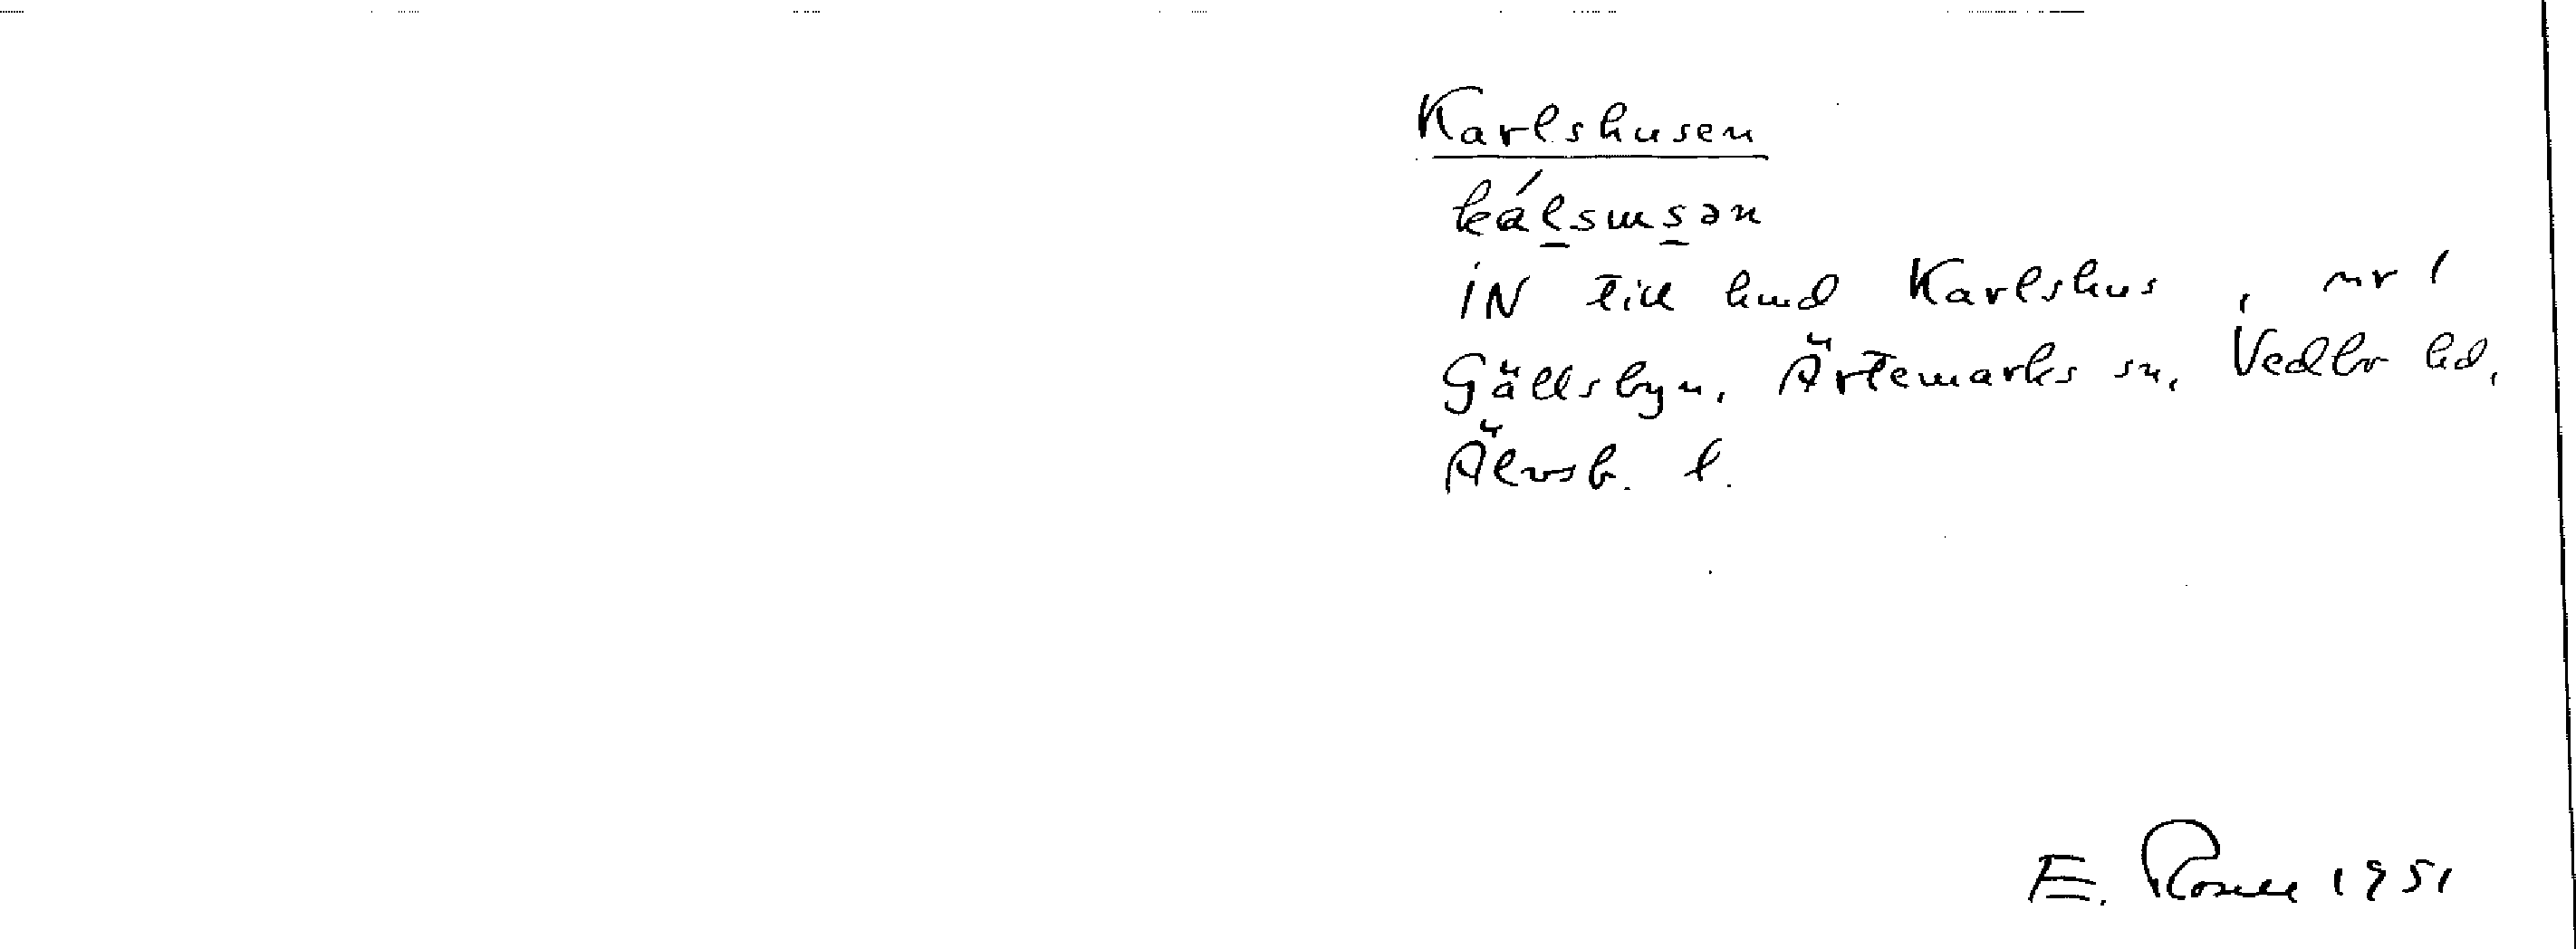 Karlshusen
kálsɯsən
iN till hmd Karlshus, nr 1
Gällsbyn, Ärtemarks sn, Vedbo hd,
Älvsb. l.
E. Rosell 1951